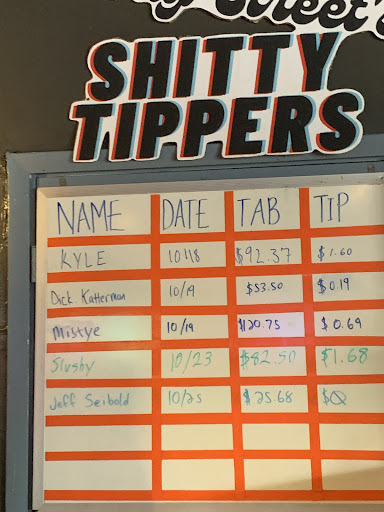 Street's
SHITTY
TIPPERS
NAME DATE TAB TIP
KYLE 10/18 $92.37 $1.60
Dick Katterman 10/19 $53.50 $0.19
Mistye 10/19 $120.75 $0.69
Slushy 10/23 $82.50 $1.68
Jeff Seibold 10/25 $25.68 $0